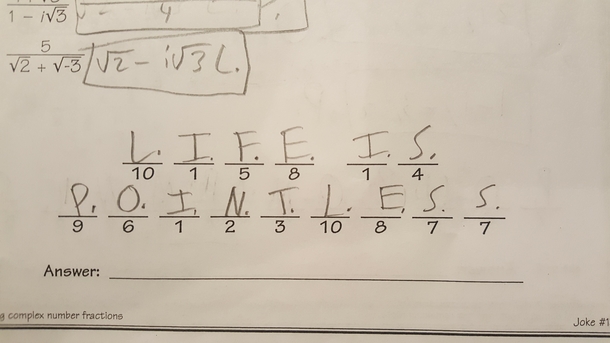 1 − i√3 4
5
√2 + √-3 √2 − i√3 L.
L. I. F. E. I. S.
10 1 5 8 1 4
P. O. I. N. T. L. E. S. S.
9 6 1 2 3 10 8 7 7
Answer:
complex number fractions Joke #1